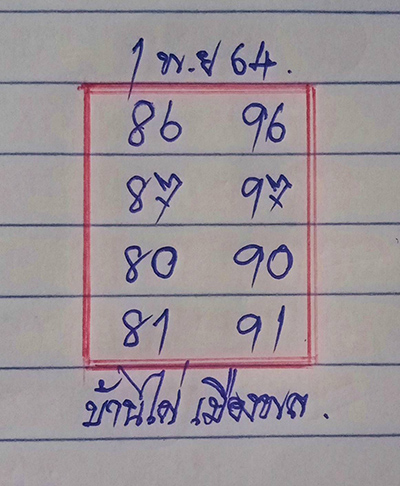 1 พ.ย 64.
86 96
87 97
80 90
81 91
บ้านไผ่ เมืองพล.